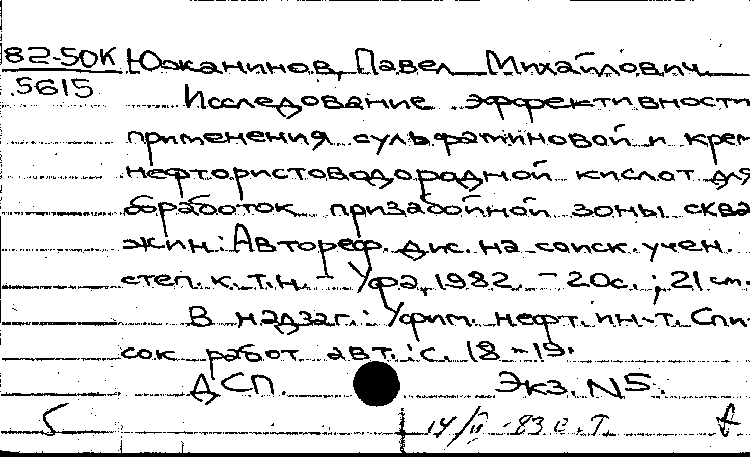 82-50К Южанинов, Павел Михайлович
5615
Исследование эффективности
применения сульфаминовой и крем
нефтористоводородной кислот для
обработок призабойной зоны сква
жин: Автореф. дис. на соиск. учен.
степ. к. т. н. - Уфа, 1982. - 20с.; 21 см.
В надзаг.: Уфим. нефт. ин-т. Спи-
сок работ авт.: с. 18-19.
ДСП. Экз. N5.
5 14/II-83 С.Т.